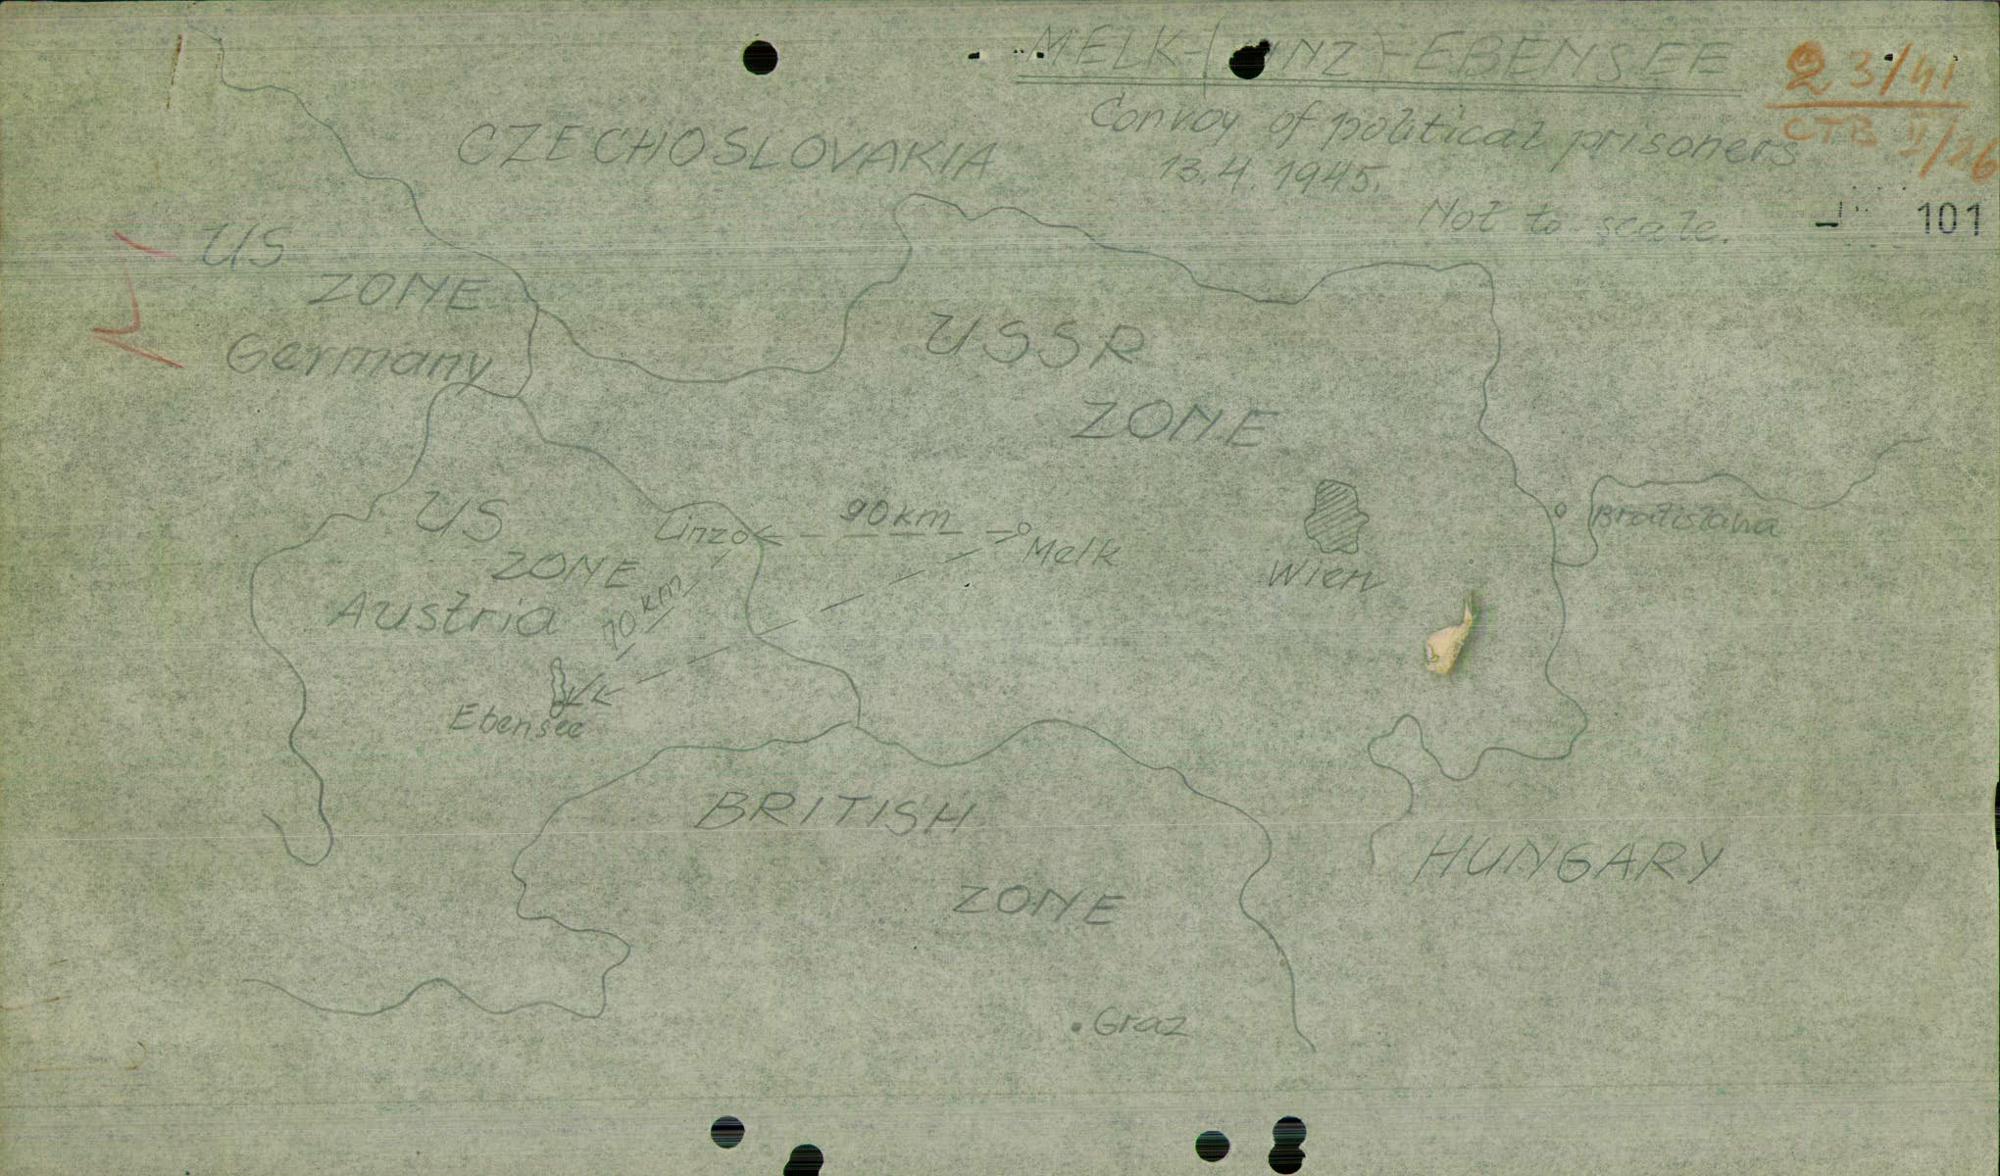 MELK-(LINZ)-EBENSEE
Convoy of political prisoners
13.4.1945.
Not to scale.
23/41
CTB II/26
101
CZECHOSLOVAKIA
US
ZONE
Germany
USSR
ZONE
US
ZONE
Austria
Linz
90 km
Melk
70 km
Ebensee
Wien
Bratislava
BRITISH
ZONE
HUNGARY
Graz